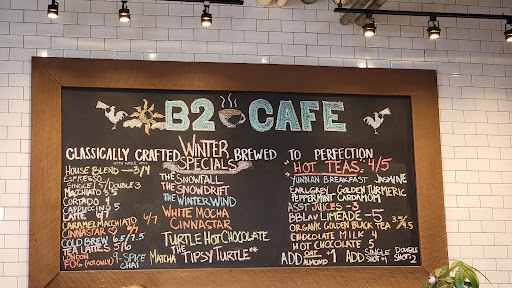 B2 CAFE
B2 CAFE
CLASSICALLY CRAFTED
WITH WHOLE MILK
HOUSE BLEND — 3/4
ESPRESSO
SINGLE 2.5/DOUBLE 3
MACCHIATO 3.5
CORTADO 4
CAPPUCCINO 5
LATTE 4/5
CARAMEL MACCHIATO 4/7
CINNASTAR
COLD BREW 6.5/7.5
TEA LATTES 5/6
LONDON
FOG (HOT ONLY)
9-SPICE
CHAI
MATCHA
WINTER
SPECIALS
BREWED
THE SNOWFALL
THE SNOWDRIFT
THE WINTER WIND
WHITE MOCHA
CINNASTAR
TURTLE HOT CHOCOLATE
THE "TIPSY TURTLE"
TO PERFECTION
"HOT TEAS" 4/5
YUNNAN BREAKFAST JASMINE
EARL GREY GOLDEN TURMERIC
PEPPERMINT CARDAMOM
ASST JUICES - 3
BBLAV LIMEADE - 5
ORGANIC GOLDEN BLACK TEA 3.5/4.5
CHOCOLATE MILK 4
HOT CHOCOLATE 5
ADD OAT ALMOND +1 ADD SINGLE SHOT +1 DOUBLE SHOT +2